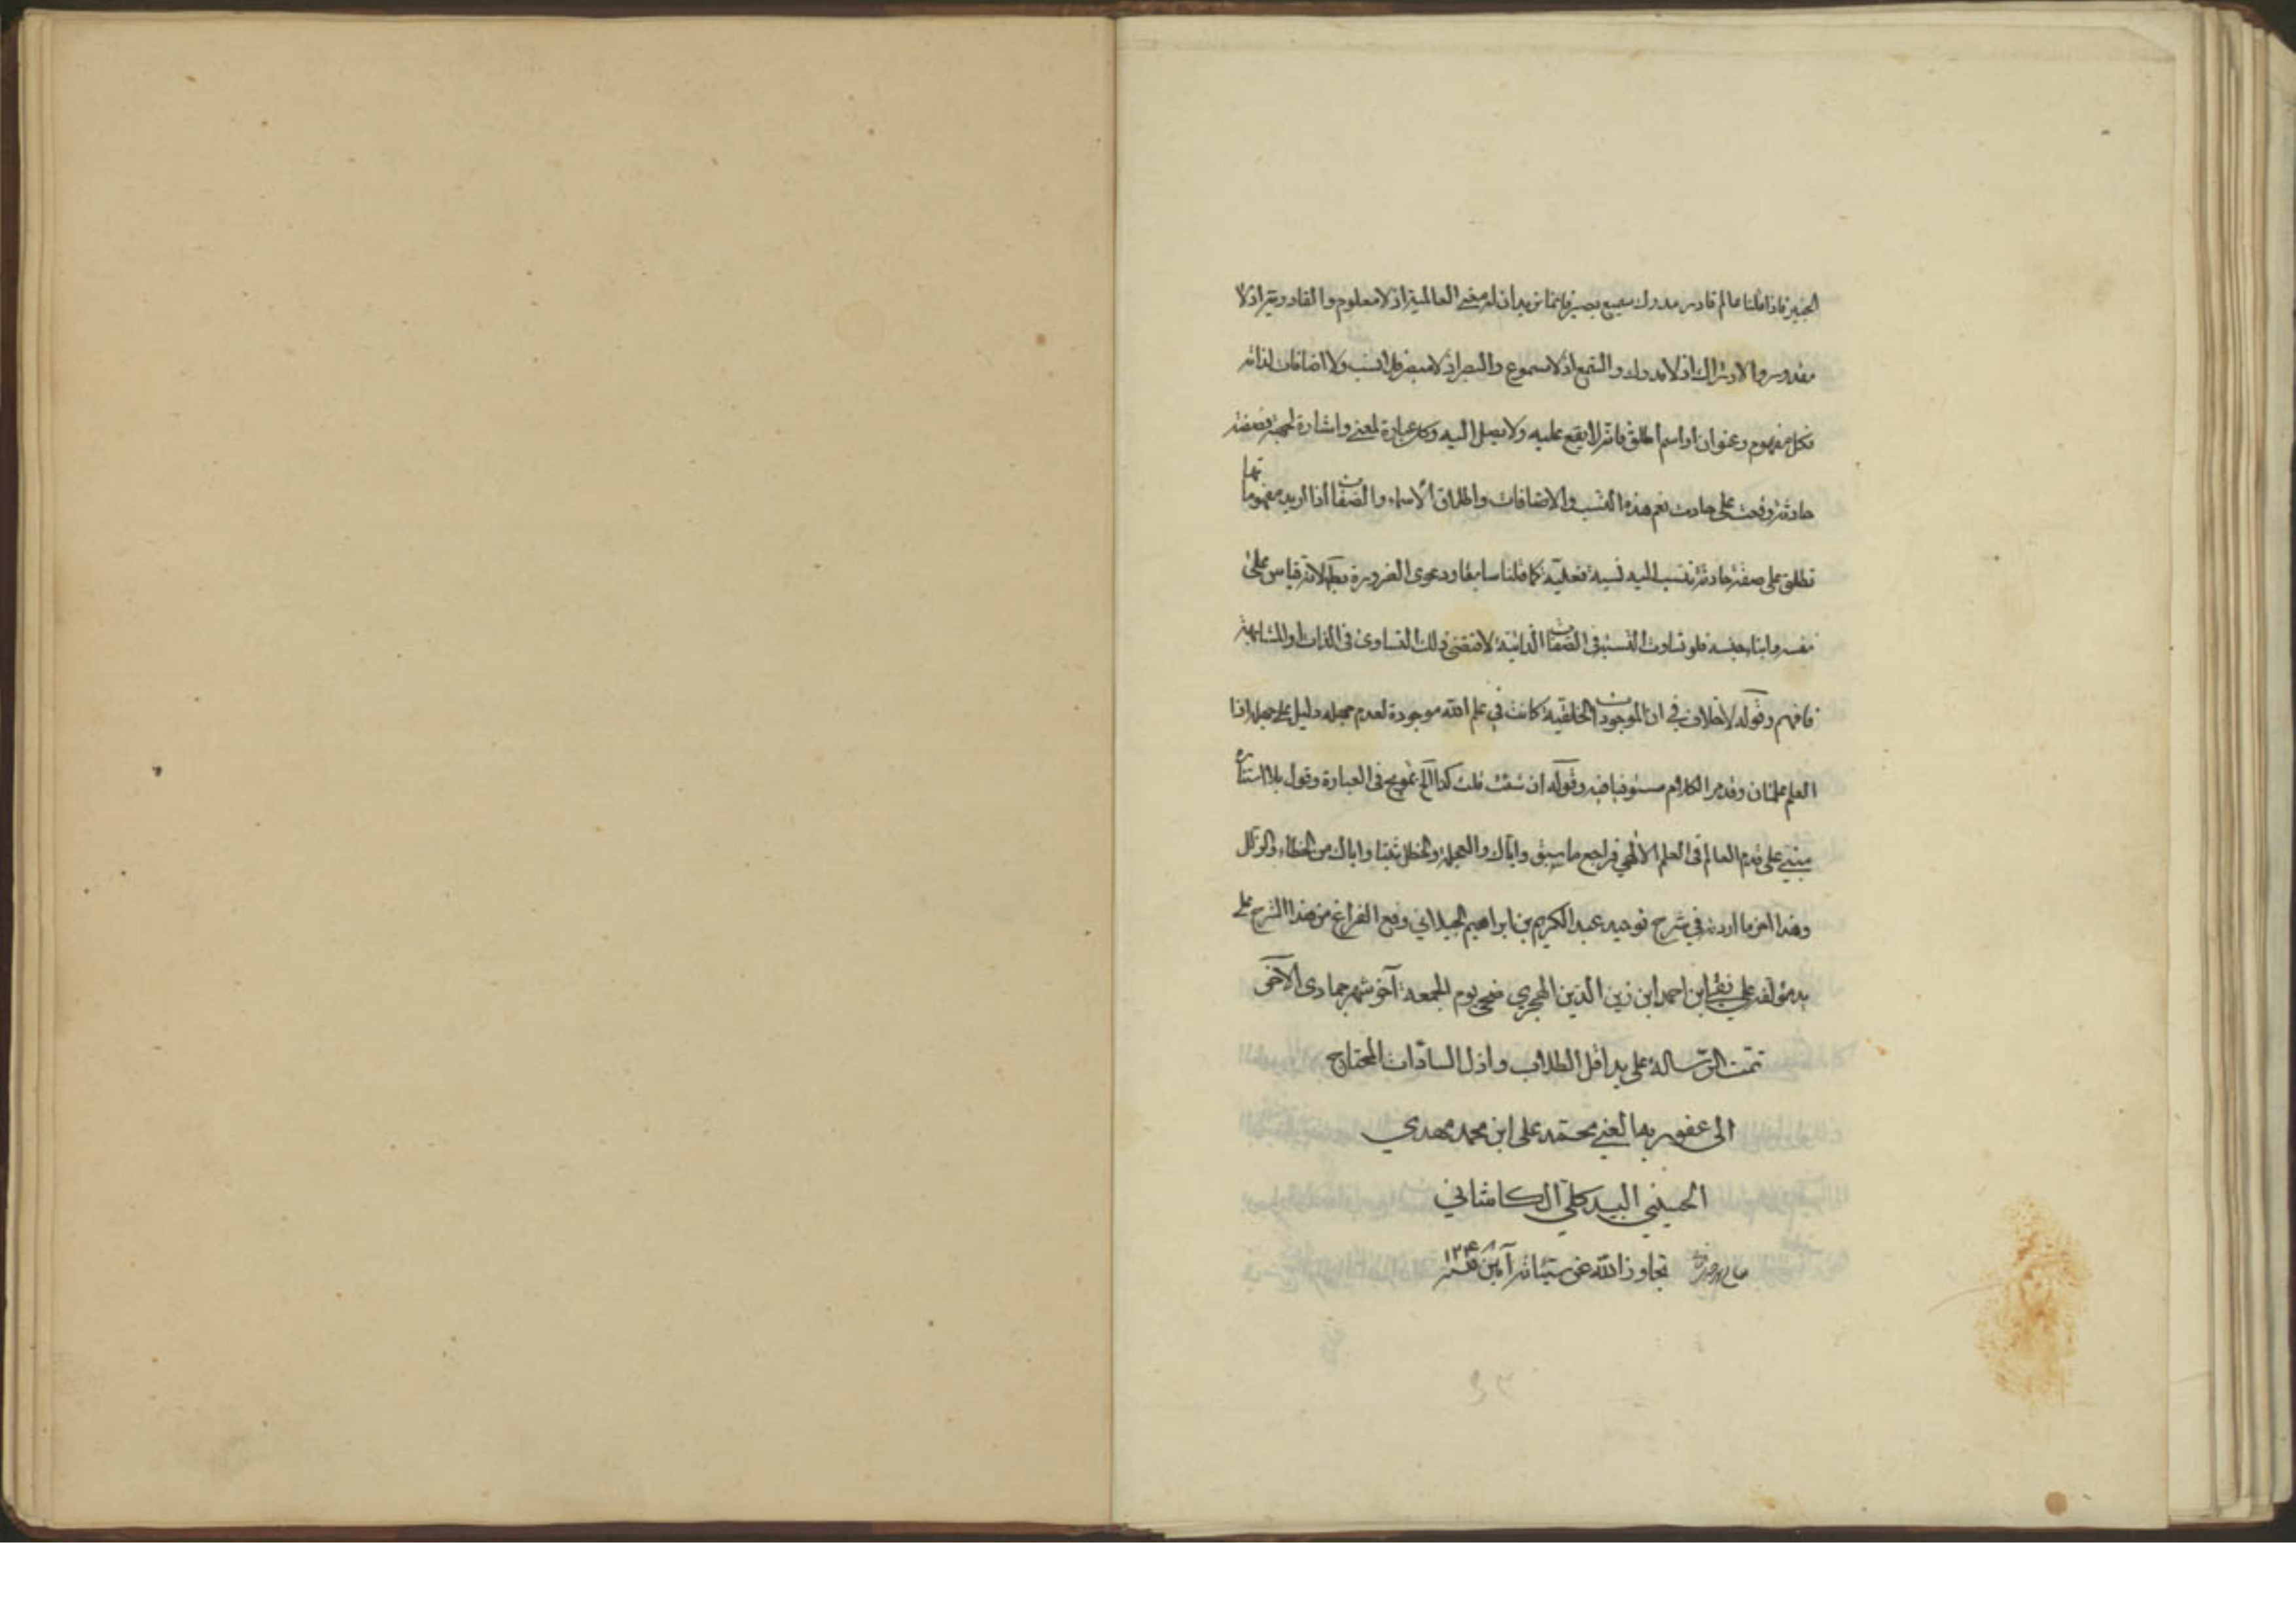 الخبير فاذا قلنا عالم قادر مدرك سميع بصير فانما نريد ان له معنى العالمية اذ لا معلوم والقادرية اذ لا
مقدور والادراك اذ لا مدرك والسمع اذ لا مسموع والبصر اذ لا مبصر فلا نسب ولا اضافات لذاته
فكل مفهوم وعنوان او اسم اطلق فانه لا يقع عليه ولا يصل اليه وكل عبارة لمعنى واشارة لجهة فصفة
حادثة وقعت على حادث نعم هذه النسب والاضافات واطلاق الاسماء والصفات اذا اريد مفهوماتها
تطلق على صفة حادثة تنسب اليه نسبة فعلية كما قلنا سابقا ودعوى الضرورة لانه قياس على
نفسه وابناء جنسه فلو تساوت النسبة في الصفات الذاتية لاقتضى ذلك التساوى في الذات او المشابهة
فافهم وقوله لا خلاف في ان الموجودات الخلقية كانت في علم الله موجودة لعدم جهله دليل على جهله اذا
العلم علمان وقد مر الكلام مستوفيا فيه وقوله ان شئت قلت كذا الخ تمويه في العبارة وقول بلا استتارة
مبني على قدم العالم في العلم الالهي فراجع ما سبق واياك والعجلة والخطل ثبتنا واياك من الخطاء والزلل
وهذا اخر ما اردنه في شرح توحيد عبد الكريم بن ابراهيم الجيلاني وقع الفراغ من هذا الشرح على
يد مؤلفه علي نقي ابن احمد ابن زين الدين الهجري ضحى يوم الجمعة آخر شهر جمادى الاخرى
تمت الرسالة على يد اقل الطلاب واذل السادات المحتاج
الى عفو ربه الغني محمد على ابن محمد مهدي
الحسيني البيدكلي الكاشاني
تجاوز الله عن سيئاته آمين